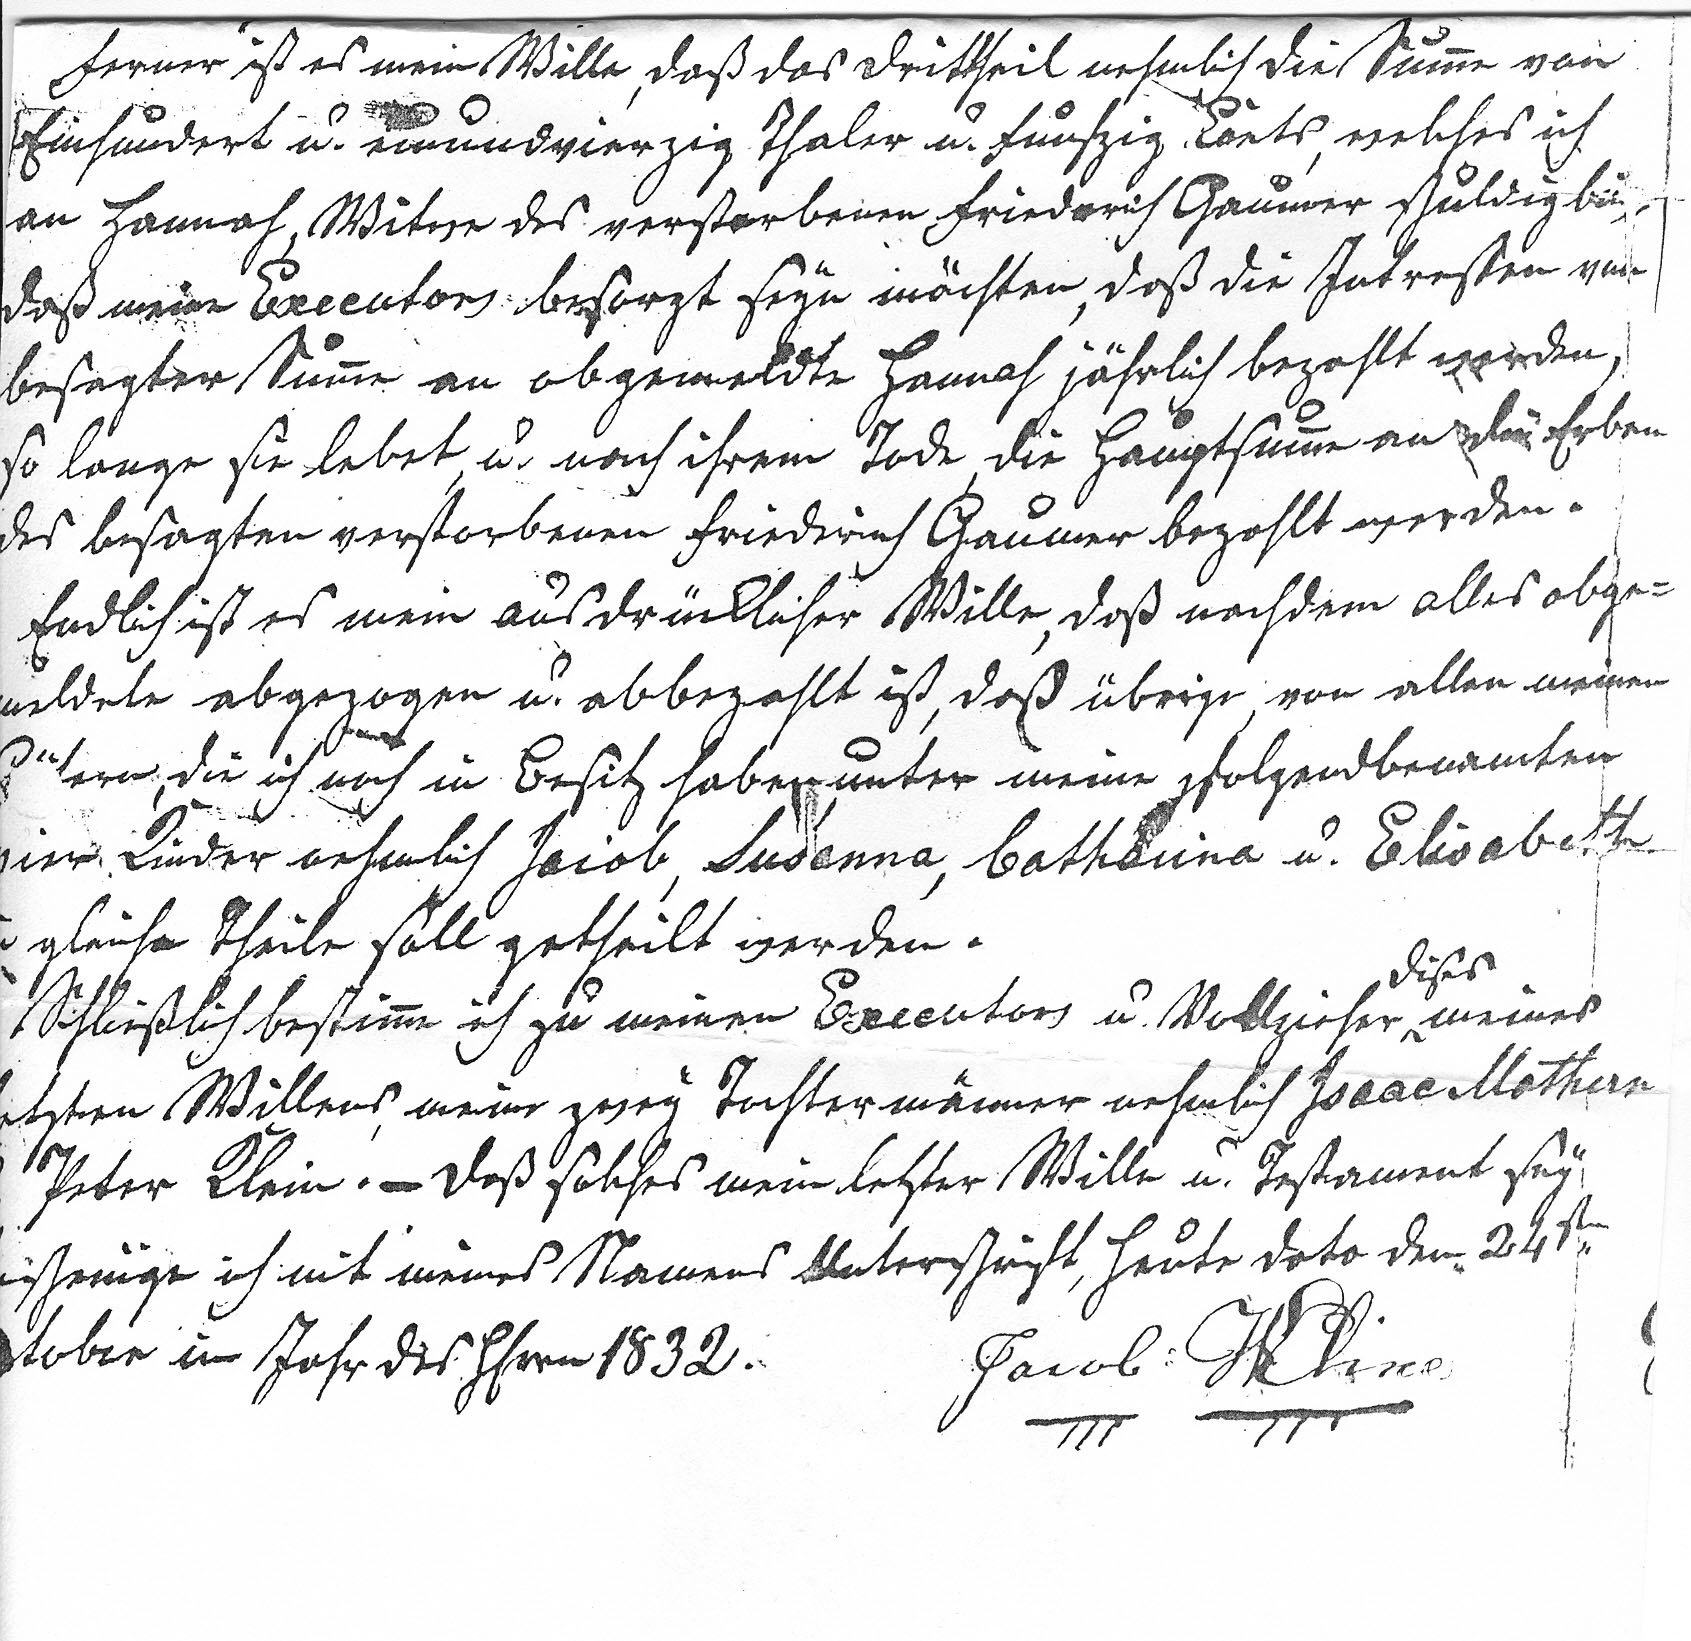 Ferner ist es mein Wille, daß das Drittheil nehmlich die Sum̄e von
Einhundert u. einundvierzig Thaler u. funfzig Cents, welches ich
an Hannah, Witwe des verstorbenen Friedrich Gaumer schuldig bin,
daß meine Executors besorgt seÿn möchten, daß die Intressen von
besagter Sum̄e an obgemeldte Hannah jährlich bezahlt werden,
so lange sie lebet, u. nach ihrem Tode, die Hauptsum̄e an die Erben
des besagten verstorbenen Friederich Gaumer bezahlt werden.
Endlich ist es mein ausdrücklicher Wille, daß nachdem alles obge=
meldete abgezogen u. abbezahlt ist, daß übrige, von allen meinen
Gütern, die ich noch in Besitz habe, unter meine folgendbenamten
vier Kinder nehmlich Jacob, Susanna, Catharina u. Elisabeth
gleiche Theile soll getheilt werden.
dises
Schließlich bestim̄e ich zu meinen Executors u. Vollzieher meines
letzten Willens, meine zweÿ Tochtermänner nehmlich Isaac Mathern
Peter Klein. — Daß solches mein letzter Wille u. Testament seÿ
ich mit meines Namens Unterschrift, heute dato den 24sten
tober im Jahr des Herrn 1832.
Jacob Kline